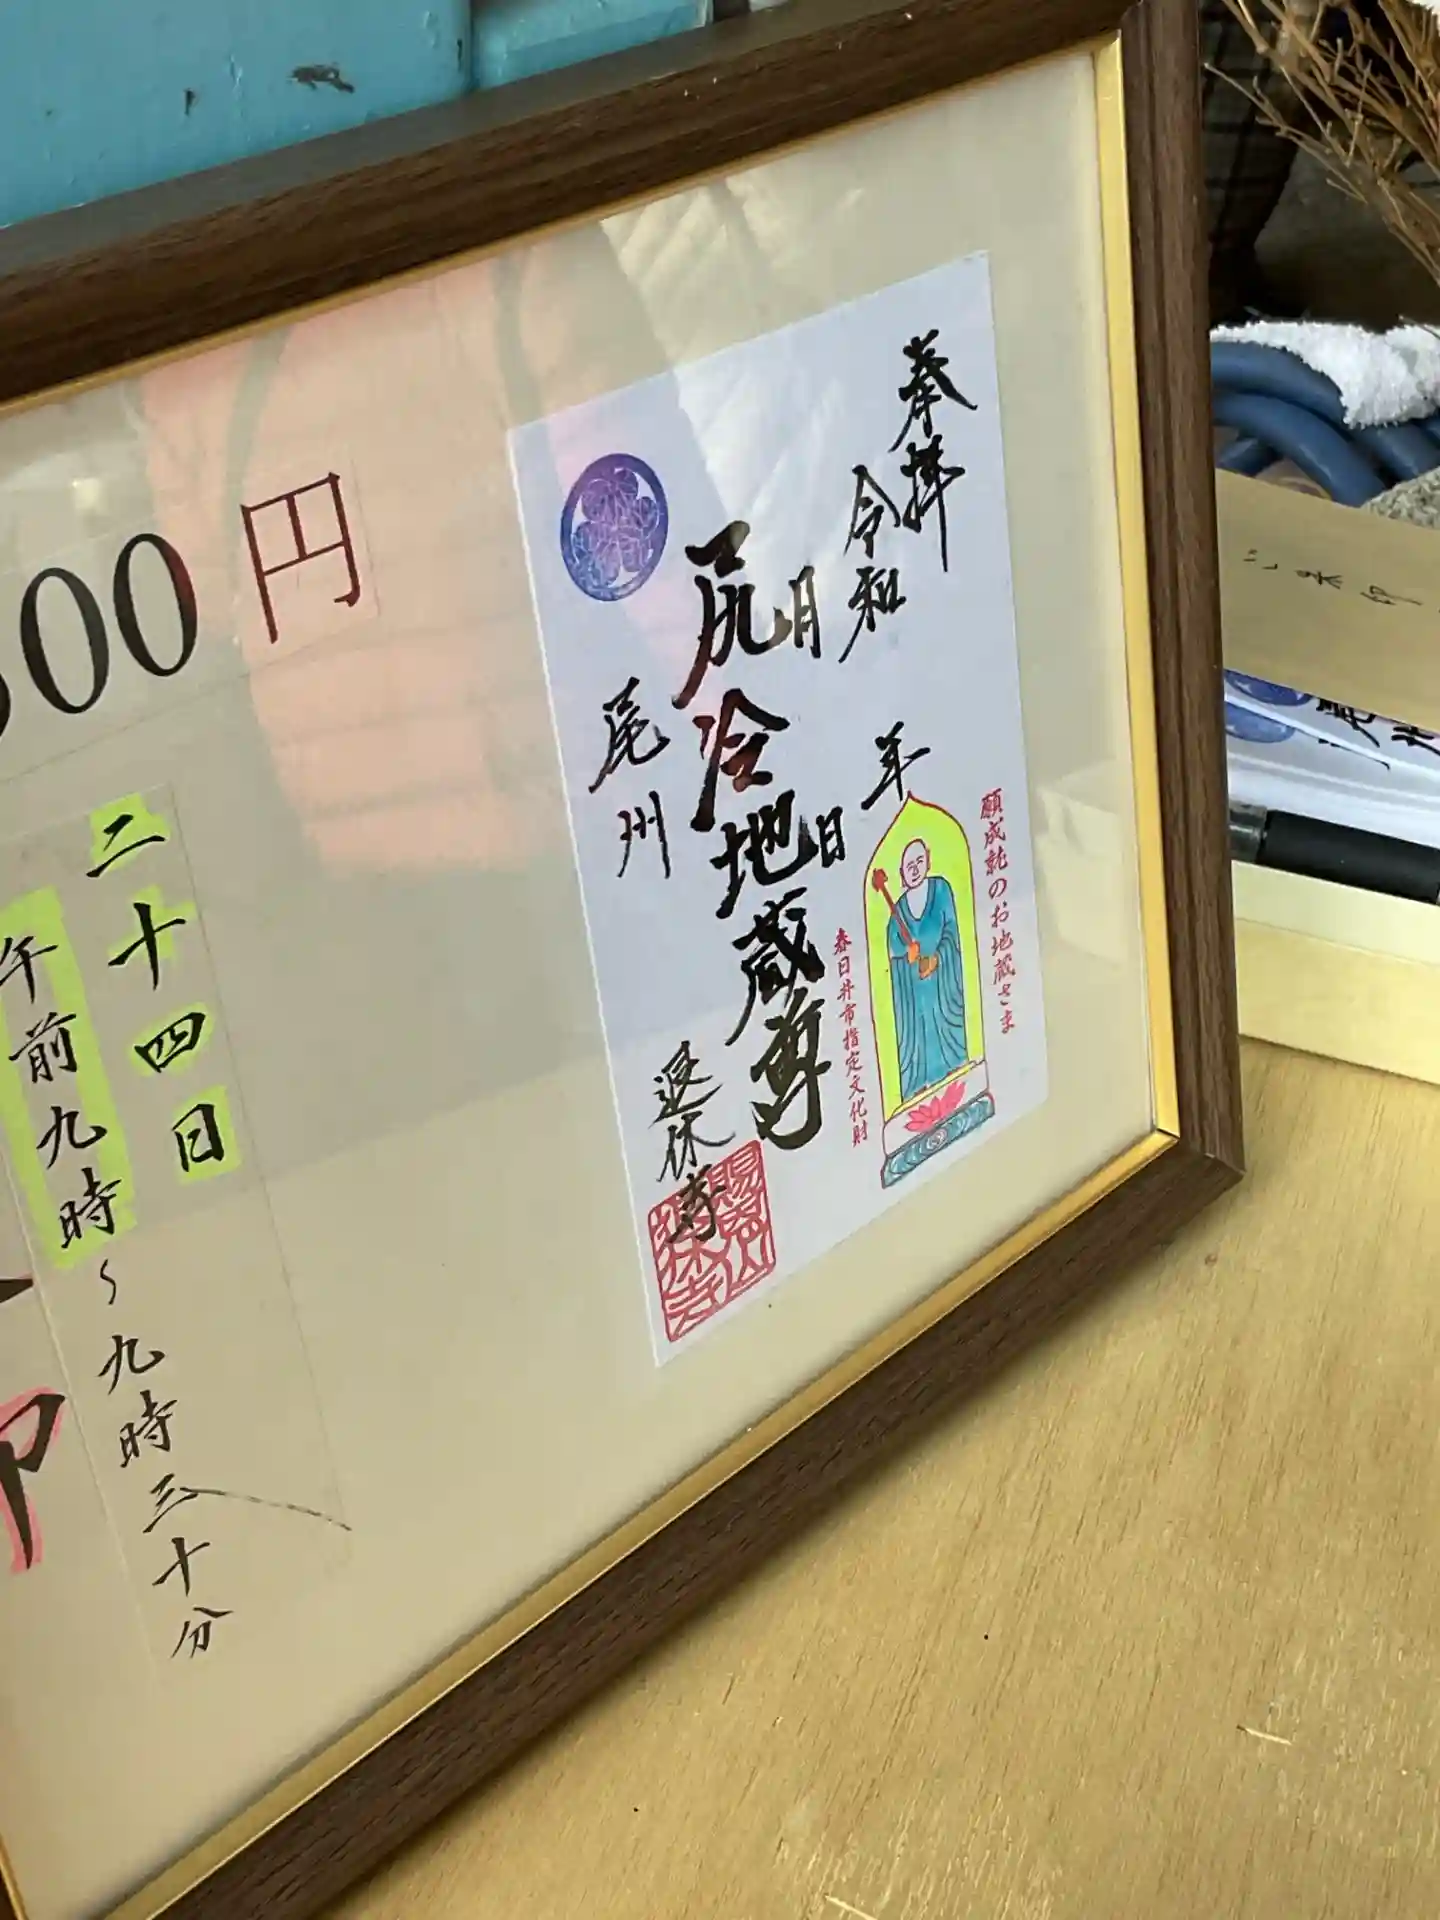 奉拝
令和　年
月　日
願成就のお地蔵さま
春日井市指定文化財
尻冷地蔵尊
尾州
退休寺
00円
二十四日
午前九時〜九時三十分
印